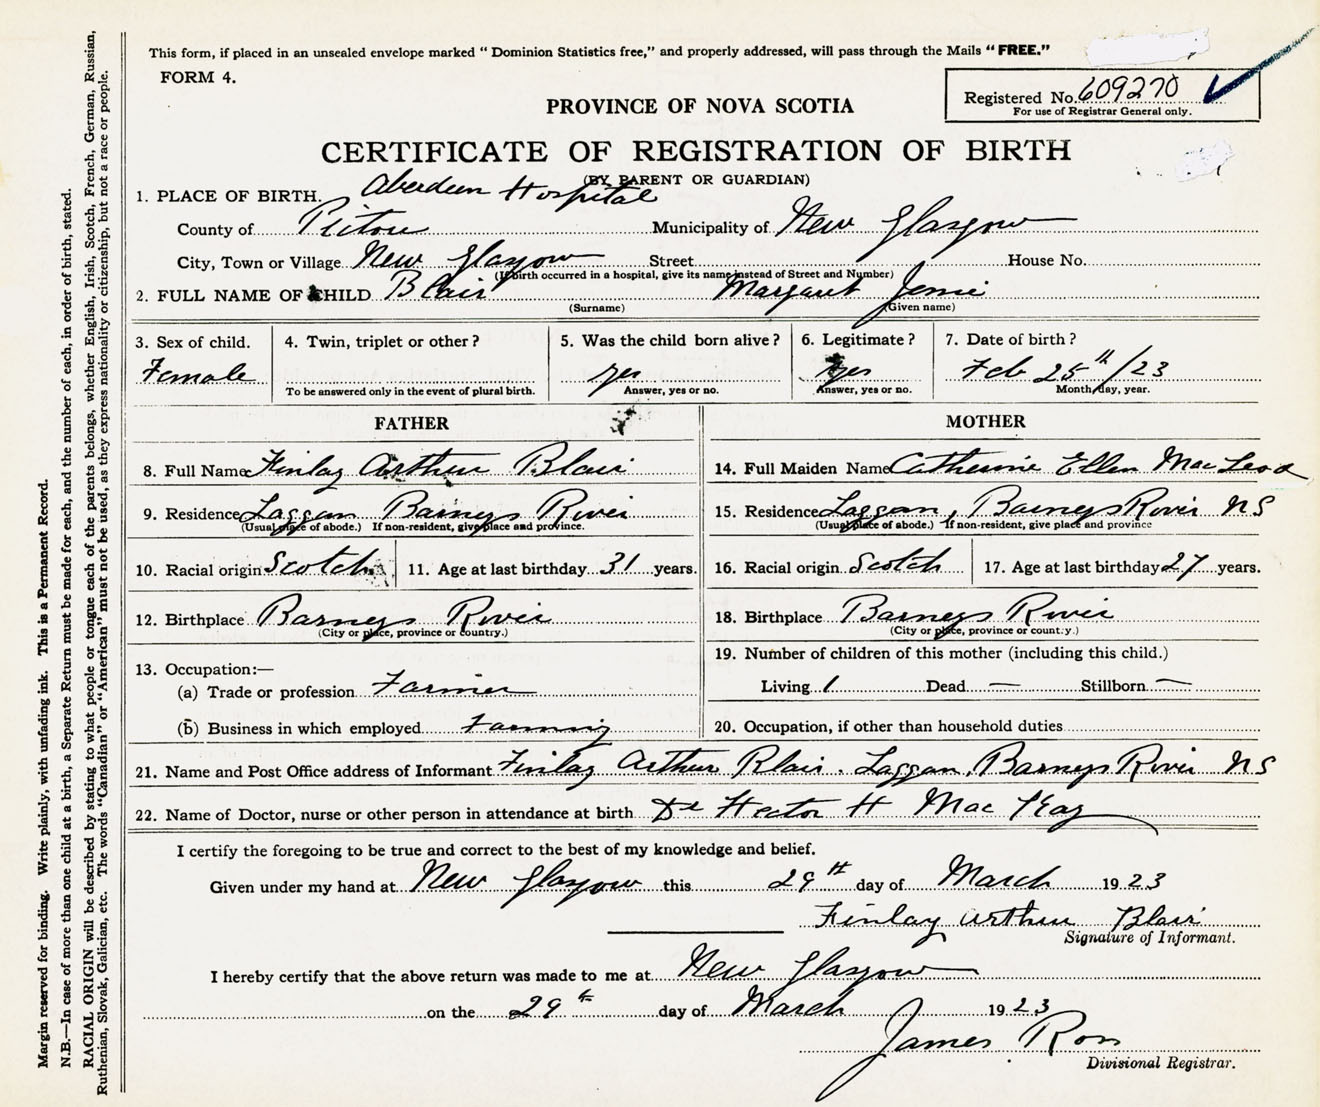 This form, if placed in an unsealed envelope marked “ Dominion Statistics free,” and properly addressed, will pass through the Mails “ FREE.”
FORM 4.
Registered No. 609270
For use of Registrar General only.
PROVINCE OF NOVA SCOTIA
CERTIFICATE OF REGISTRATION OF BIRTH
(BY PARENT OR GUARDIAN)
1. PLACE OF BIRTH. Aberdeen Hospital
County of Pictou Municipality of New Glasgow
City, Town or Village New Glasgow Street House No.
(If birth occurred in a hospital, give its name instead of Street and Number)
2. FULL NAME OF CHILD Blair Margaret Jessie
(Surname) (Given name)
3. Sex of child. 4. Twin, triplet or other ? 5. Was the child born alive ? 6. Legitimate ? 7. Date of birth ?
Female yes yes Feb 25th/23
To be answered only in the event of plural birth. Answer, yes or no. Answer, yes or no. Month, day, year.
FATHER MOTHER
8. Full Name Finlay Arthur Blair 14. Full Maiden Name Catherine Ellen MacLeod
9. Residence Laggan Barneys River 15. Residence Laggan, Barneys River NS
(Usual place of abode.) If non-resident, give place and province. (Usual place of abode.) If non-resident, give place and province
10. Racial origin Scotch 11. Age at last birthday 31 years. 16. Racial origin Scotch 17. Age at last birthday 27 years.
12. Birthplace Barneys River 18. Birthplace Barneys River
(City or place, province or country.) (City or place, province or country.)
13. Occupation:— 19. Number of children of this mother (including this child.)
(a) Trade or profession Farmer Living 1 Dead — Stillborn —
(b) Business in which employed Farming 20. Occupation, if other than household duties
21. Name and Post Office address of Informant Finlay Arthur Blair. Laggan, Barneys River NS
22. Name of Doctor, nurse or other person in attendance at birth Dr Hector H MacKay
I certify the foregoing to be true and correct to the best of my knowledge and belief.
Given under my hand at New Glasgow this 29th day of March 1923
Finlay Arthur Blair
Signature of Informant.
I hereby certify that the above return was made to me at New Glasgow
on the 29th day of March 1923
James Ross
Divisional Registrar.
Margin reserved for binding. Write plainly, with unfading ink. This is a Permanent Record.
N.B.—In case of more than one child at a birth, a Separate Return must be made for each, and the number of each, in order of birth, stated.
RACIAL ORIGIN will be described by stating to what people or tongue each of the parents belongs, whether English, Irish, Scotch, French, German, Russian,
Ruthenian, Slovak, Galician, etc. The words “Canadian” or “American” must not be used, as they express nationality or citizenship, but not a race or people.